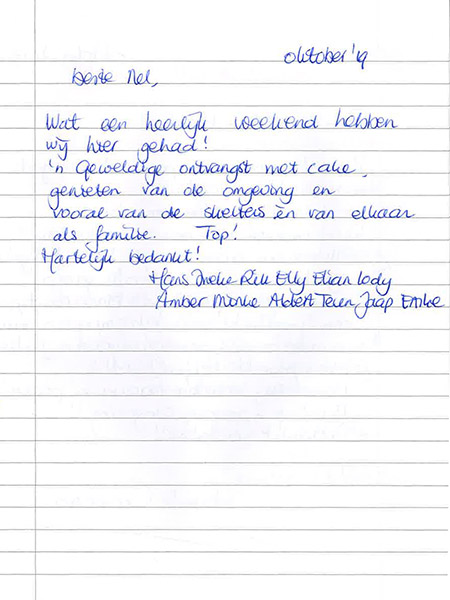 oktober '19
Beste Nel,
Wat een heerlijk weekend hebben
wij hier gehad!
'n Geweldige ontvangst met cake,
genieten van de omgeving en
vooral van de skelters èn van elkaar
als familie. Top!
Hartelijk bedankt!
Hans Ineke Elly Elian Jody
Amber Albert Teun Jaap